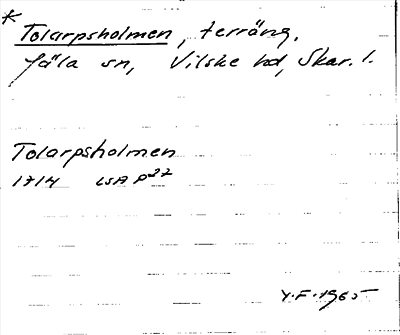 * Tolarpsholmen, terräng.
Jäla sn, Vilske hd, Skar. l.
Tolarpsholmen
1714 LSA P
Y.F. 1965